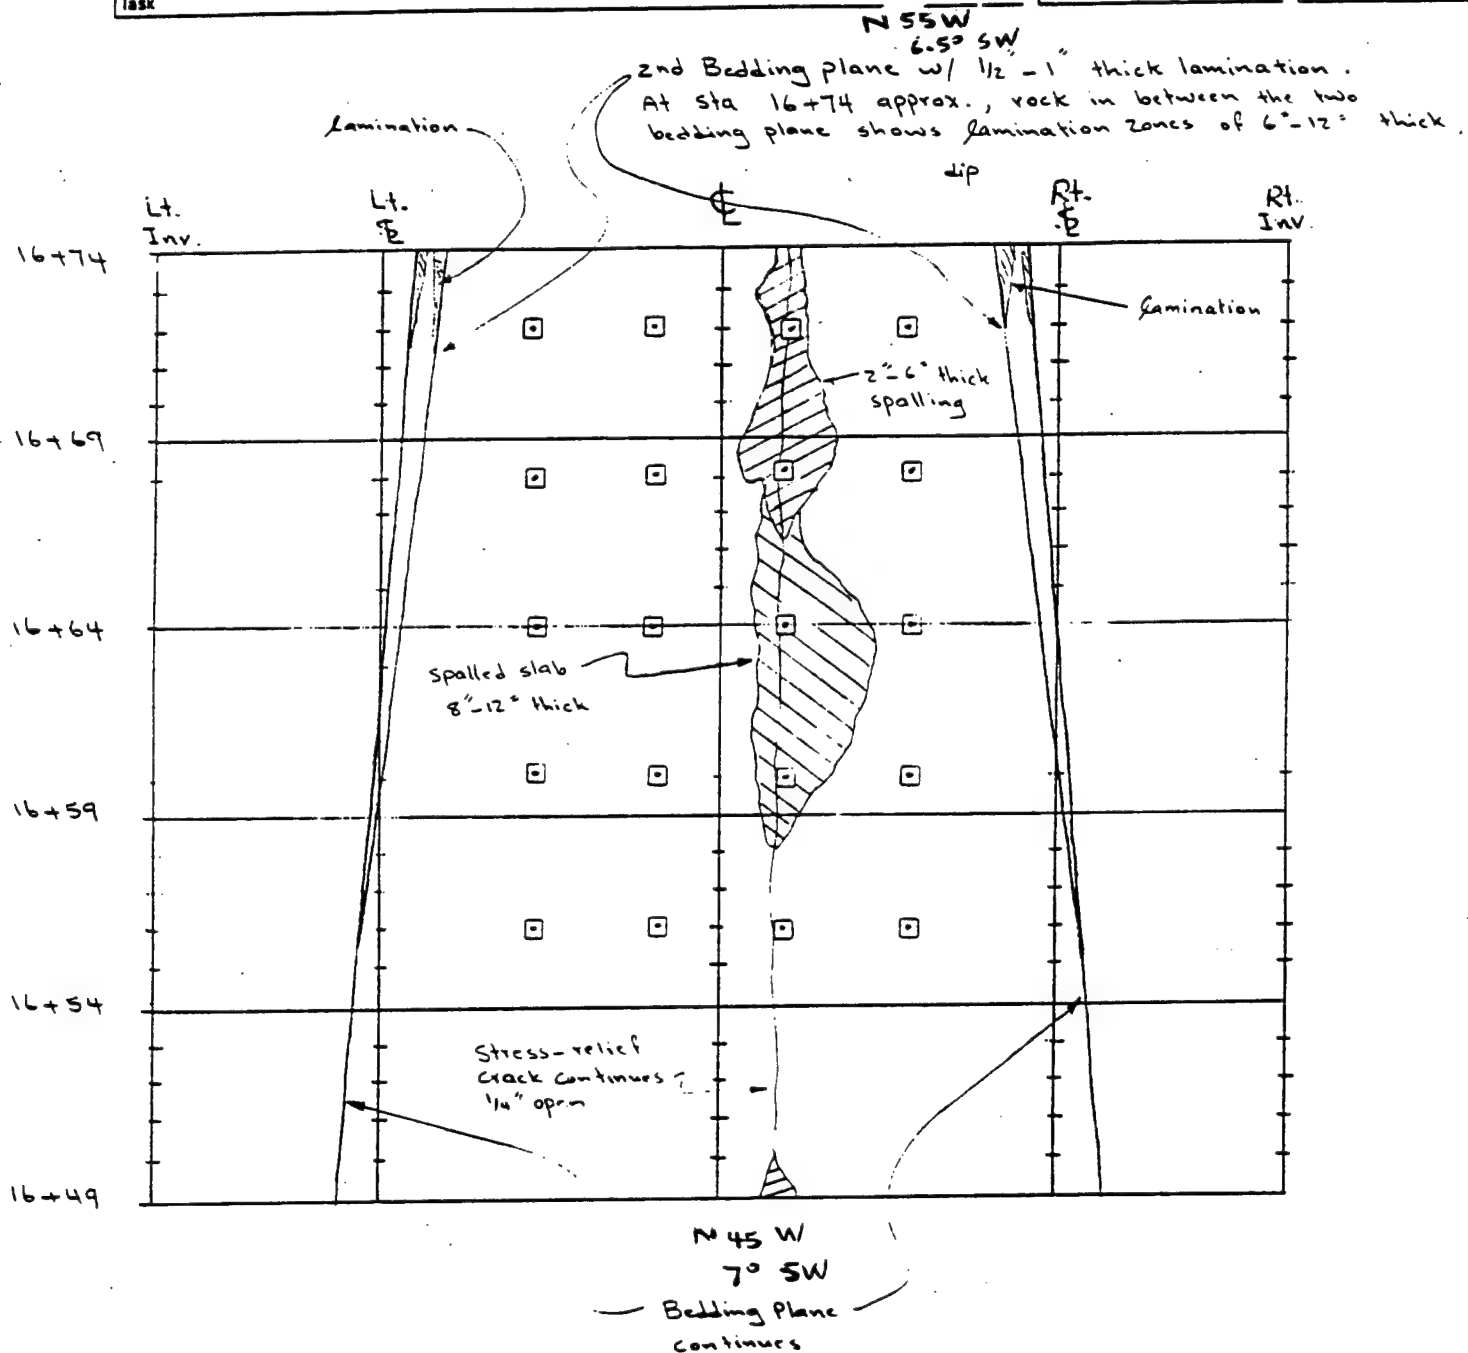 Task
N 55W
6.5° SW
2nd Bedding plane w/ 1/2" - 1" thick lamination.
At sta 16+74 approx., rock in between the two
bedding plane shows lamination zones of 6"-12" thick.
lamination
dip
Lt.
Inv.
Lt.
℄
Rt.
Rt.
Inv.
16+74
lamination
2"-6" thick
spalling
16+69
16+64
spalled slab
8"-12" thick
16+59
16+54
Stress-relief
crack continues
1/4" open
16+49
N 45 W
7° SW
Bedding Plane
continues